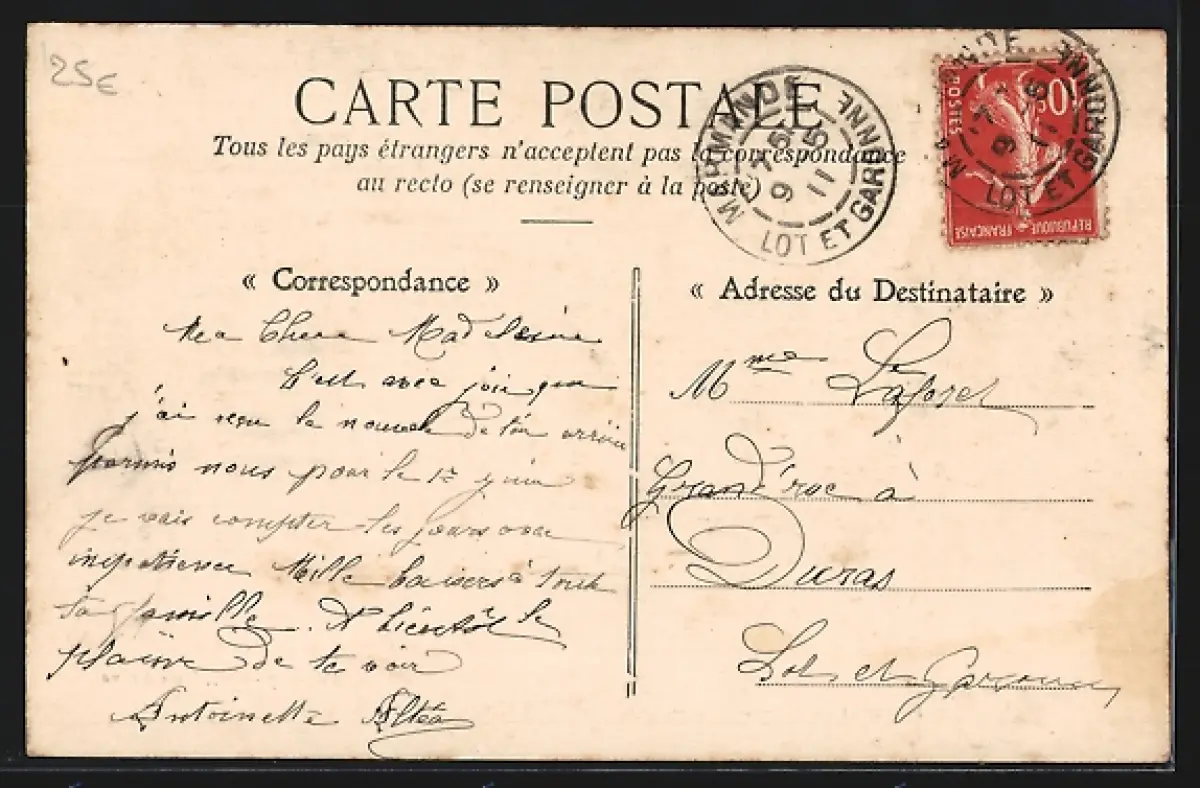 25€
CARTE POSTALE
Tous les pays étrangers n'acceptent pas la correspondance
au recto (se renseigner à la poste)
MARMANDE
7 55
9 5
11
LOT ET GARONNE
MARMANDE
9
11
LOT ET GARONNE
POSTES
10c
REPUBLIQUE FRANCAISE
« Correspondance »
Ma Chere Madeleine
C'est avec joie que
j'ai reçu la nouvelle de ton arrivée
parmis nous pour le 1er juin
je vais compter les jours avec
impatience Mille baisers à toute
ta famille. A bientôt le
plaisir de te voir
Antoinette
« Adresse du Destinataire »
Mme Laforet
Grand'rue à
Duras
Lot et Garonne